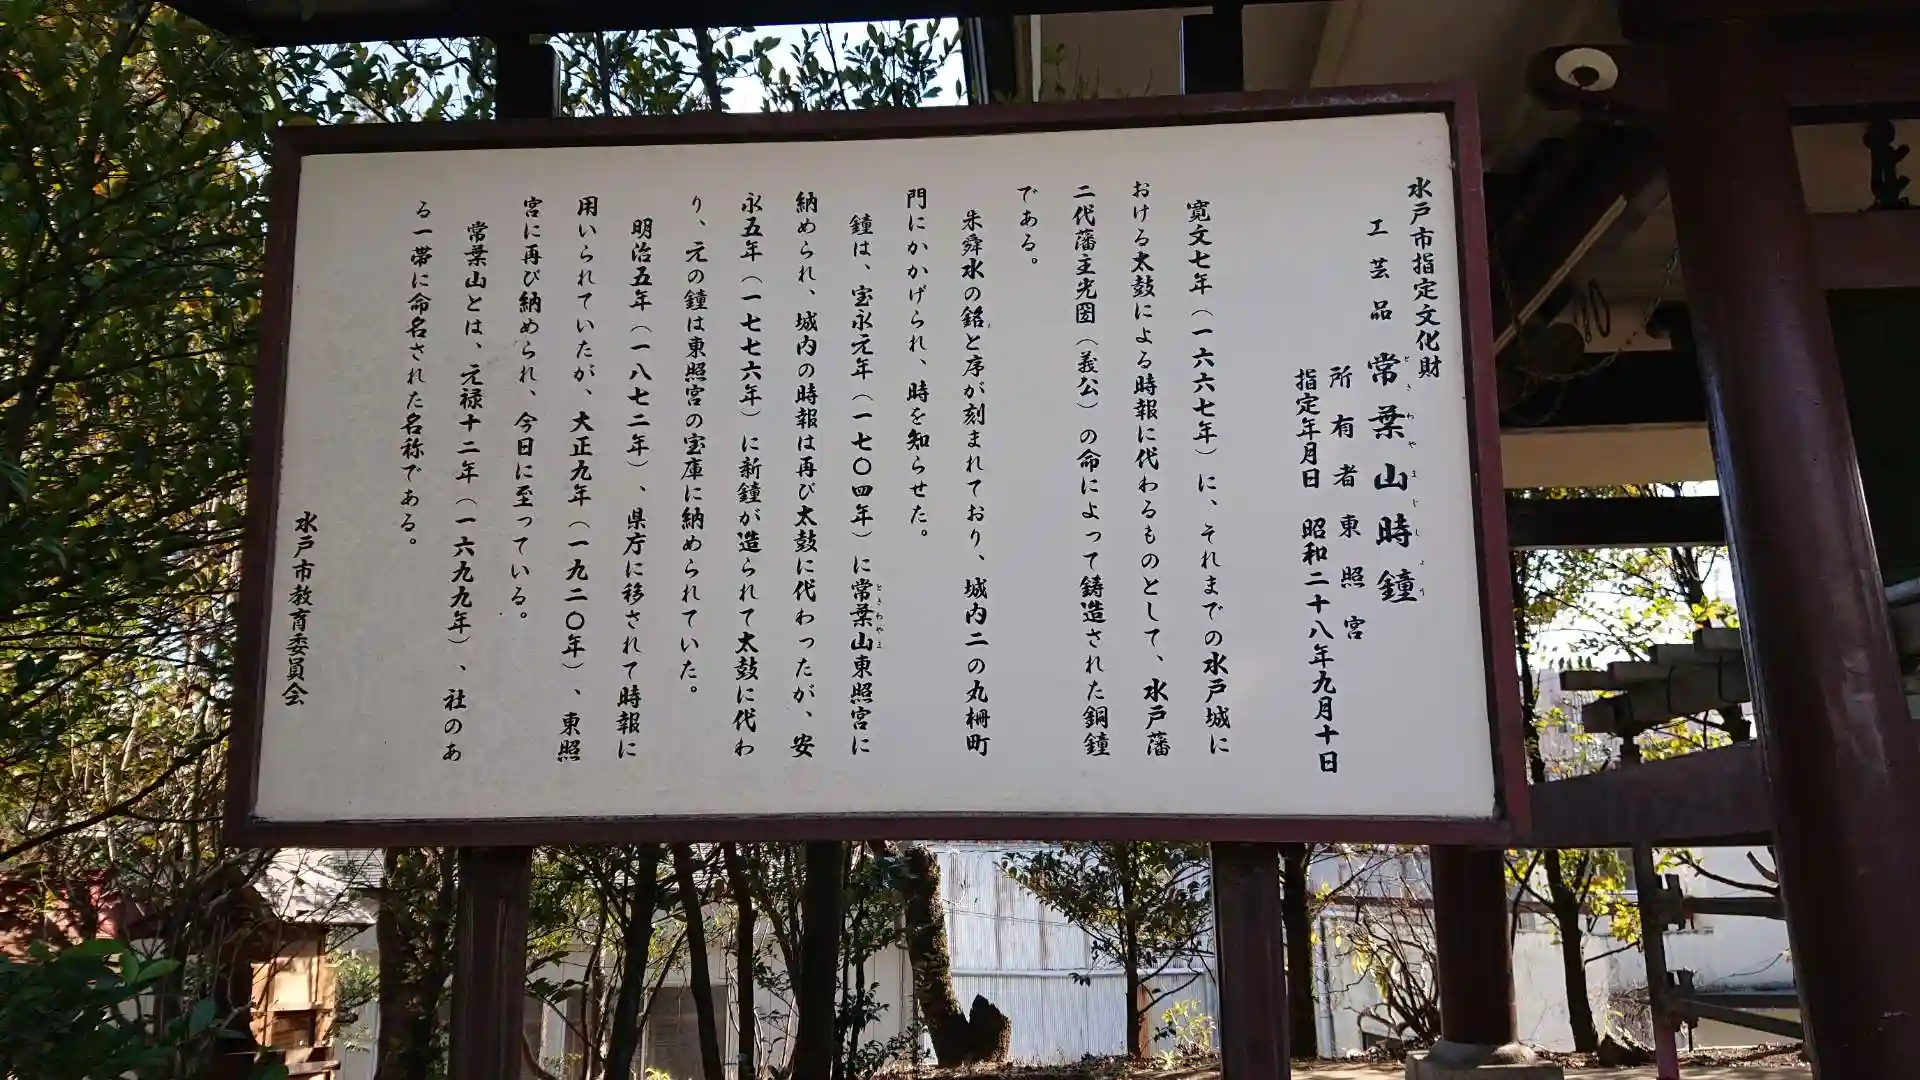 水戸市指定文化財
工芸品 常葉山時鐘
ときわやまじしょう
所有者 東照宮
指定年月日 昭和二十八年九月十日
寛文七年(一六六七年)に、それまでの水戸城に
おける太鼓による時報に代わるものとして、水戸藩
二代藩主光圀(義公)の命によって鋳造された銅鐘
である。
朱舜水の銘と序が刻まれており、城内二の丸柵町
門にかかげられ、時を知らせた。
鐘は、宝永元年(一七〇四年)に常葉山東照宮に
ときわやま
納められ、城内の時報は再び太鼓に代わったが、安
永五年(一七七六年)に新鐘が造られて太鼓に代わ
り、元の鐘は東照宮の宝庫に納められていた。
明治五年(一八七二年)、県庁に移されて時報に
用いられていたが、大正九年(一九二〇年)、東照
宮に再び納められ、今日に至っている。
常葉山とは、元禄十二年(一六九九年)、社のあ
る一帯に命名された名称である。
水戸市教育委員会